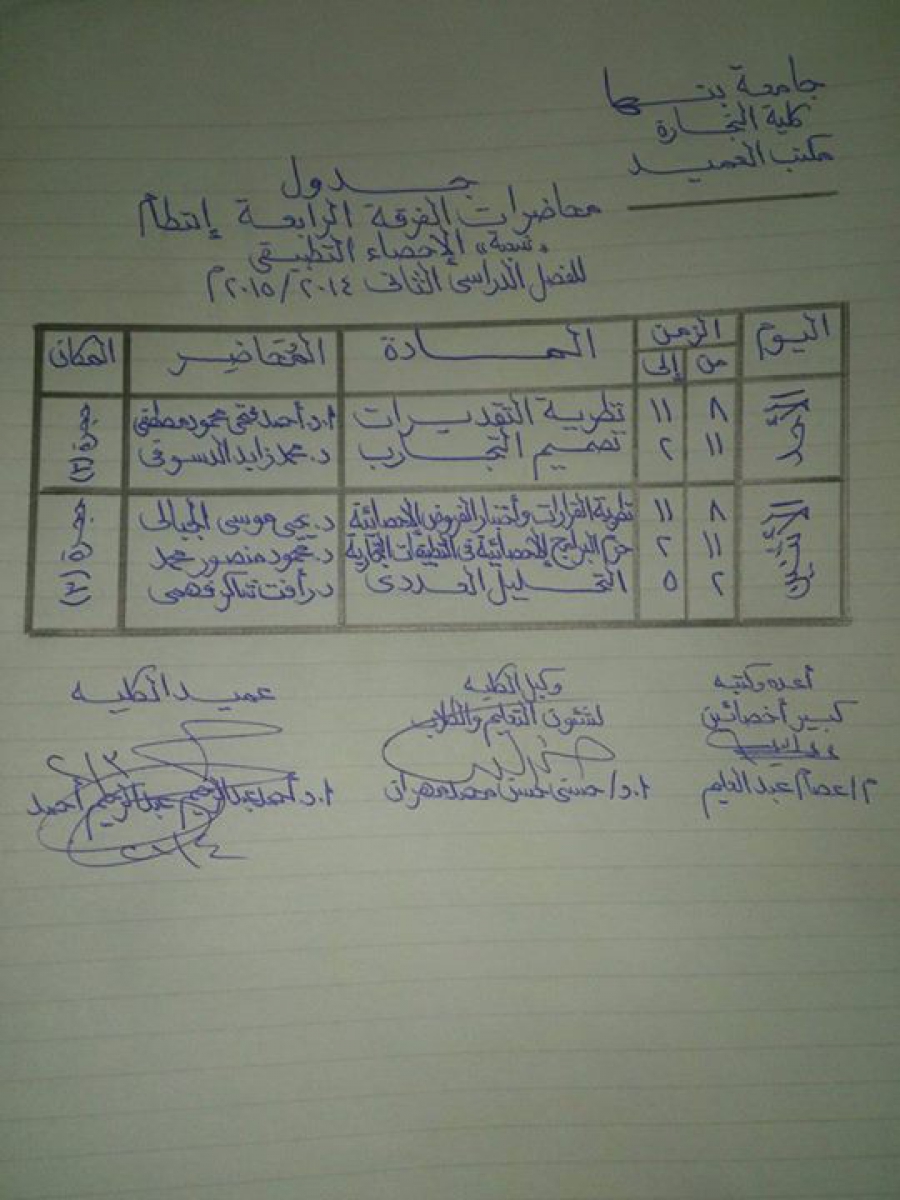 جامعة بنها
كلية التجارة
مكتب العميد
جدول
محاضرات الفرقة الرابعة إنتظام
"شعبة" الإحصاء التطبيقى
للفصل الدراسى الثانى ٢٠١٤/٢٠١٥م
اليوم الزمن المادة المُحَاضِر المكان
من إلى
الأحد
٨ ١١ نظرية التقديرات أ.د.أحمد فتحى محمود مصطفى
١١ ٢ تصميم التجارب د.محمد زايد الدسوقى
الأثنين
٨ ١١ نظرية القرارات وأختبار الفروض الإحصائية د.يحيى موسى الجبالى
١١ ٢ حزم البرامج الإحصائية فى التطبيقات التجارية د.محمود منصور محمد
٢ ٥ التحليل العددى د.رأفت شاكر فهمى
أعده وكتبه وكيل الكلية عميد الكلية
كبير أخصائين لشئون التعليم والطلاب
م/عصام عبدالعليم أ.د/حسنى حسن محمد مهران أ.د.أحمد عبدالرحيم أحمد